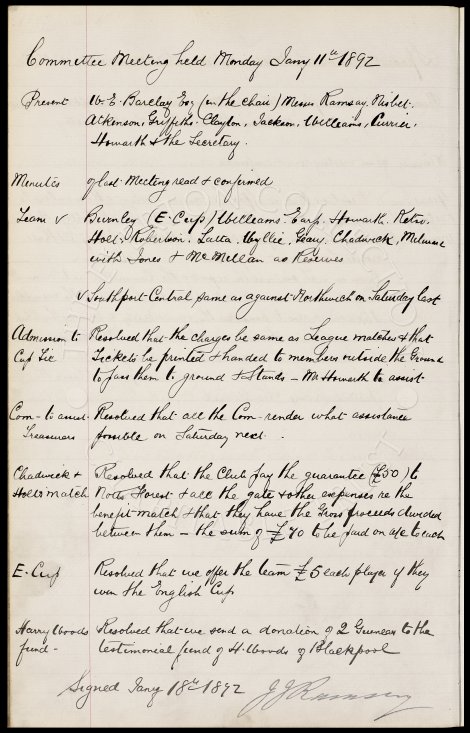 Committee Meeting held Monday Jany 11th 1892
Present W. E. Barclay Esq (in the chair) Messrs Ramsay, Nisbet,
Atkinson, Griffiths, Clayton, Jackson, Williams, Currier,
Howarth & the Secretary.
Minutes of last Meeting read & confirmed
Team v Burnley (E. Cup) Williams. Earp. Howarth. Kelso.
Holt. Robertson. Latta. Wyllie. Geary. Chadwick, Milward
with Jones & McMillan as Reserves
v Southport Central same as against Northwich on Saturday last
Admission to Resolved that the charges be same as League matches & that
Cup Tie Tickets be printed & handed to members outside the Ground
to pass them to ground & Stands – Mr Howarth to assist
Com- to assist Resolved that all the Com- render what assistance
Treasurers possible on Saturday next.
Chadwick & Resolved that the Club pay the guarantee (£50) to
Holts match Notts Forest & all the gate & other expenses re the
benefit match & that they have the Gross proceeds divided
between them – the sum of £70 to be paid on a/c to each
E. Cup Resolved that we offer the team £5 each player if they
win the English Cup
Harry Woods Resolved that we send a donation of 2 Guineas to the
fund - testimonial fund of H. Woods of Blackpool
Signed Jany 18th 1892 J J Ramsay